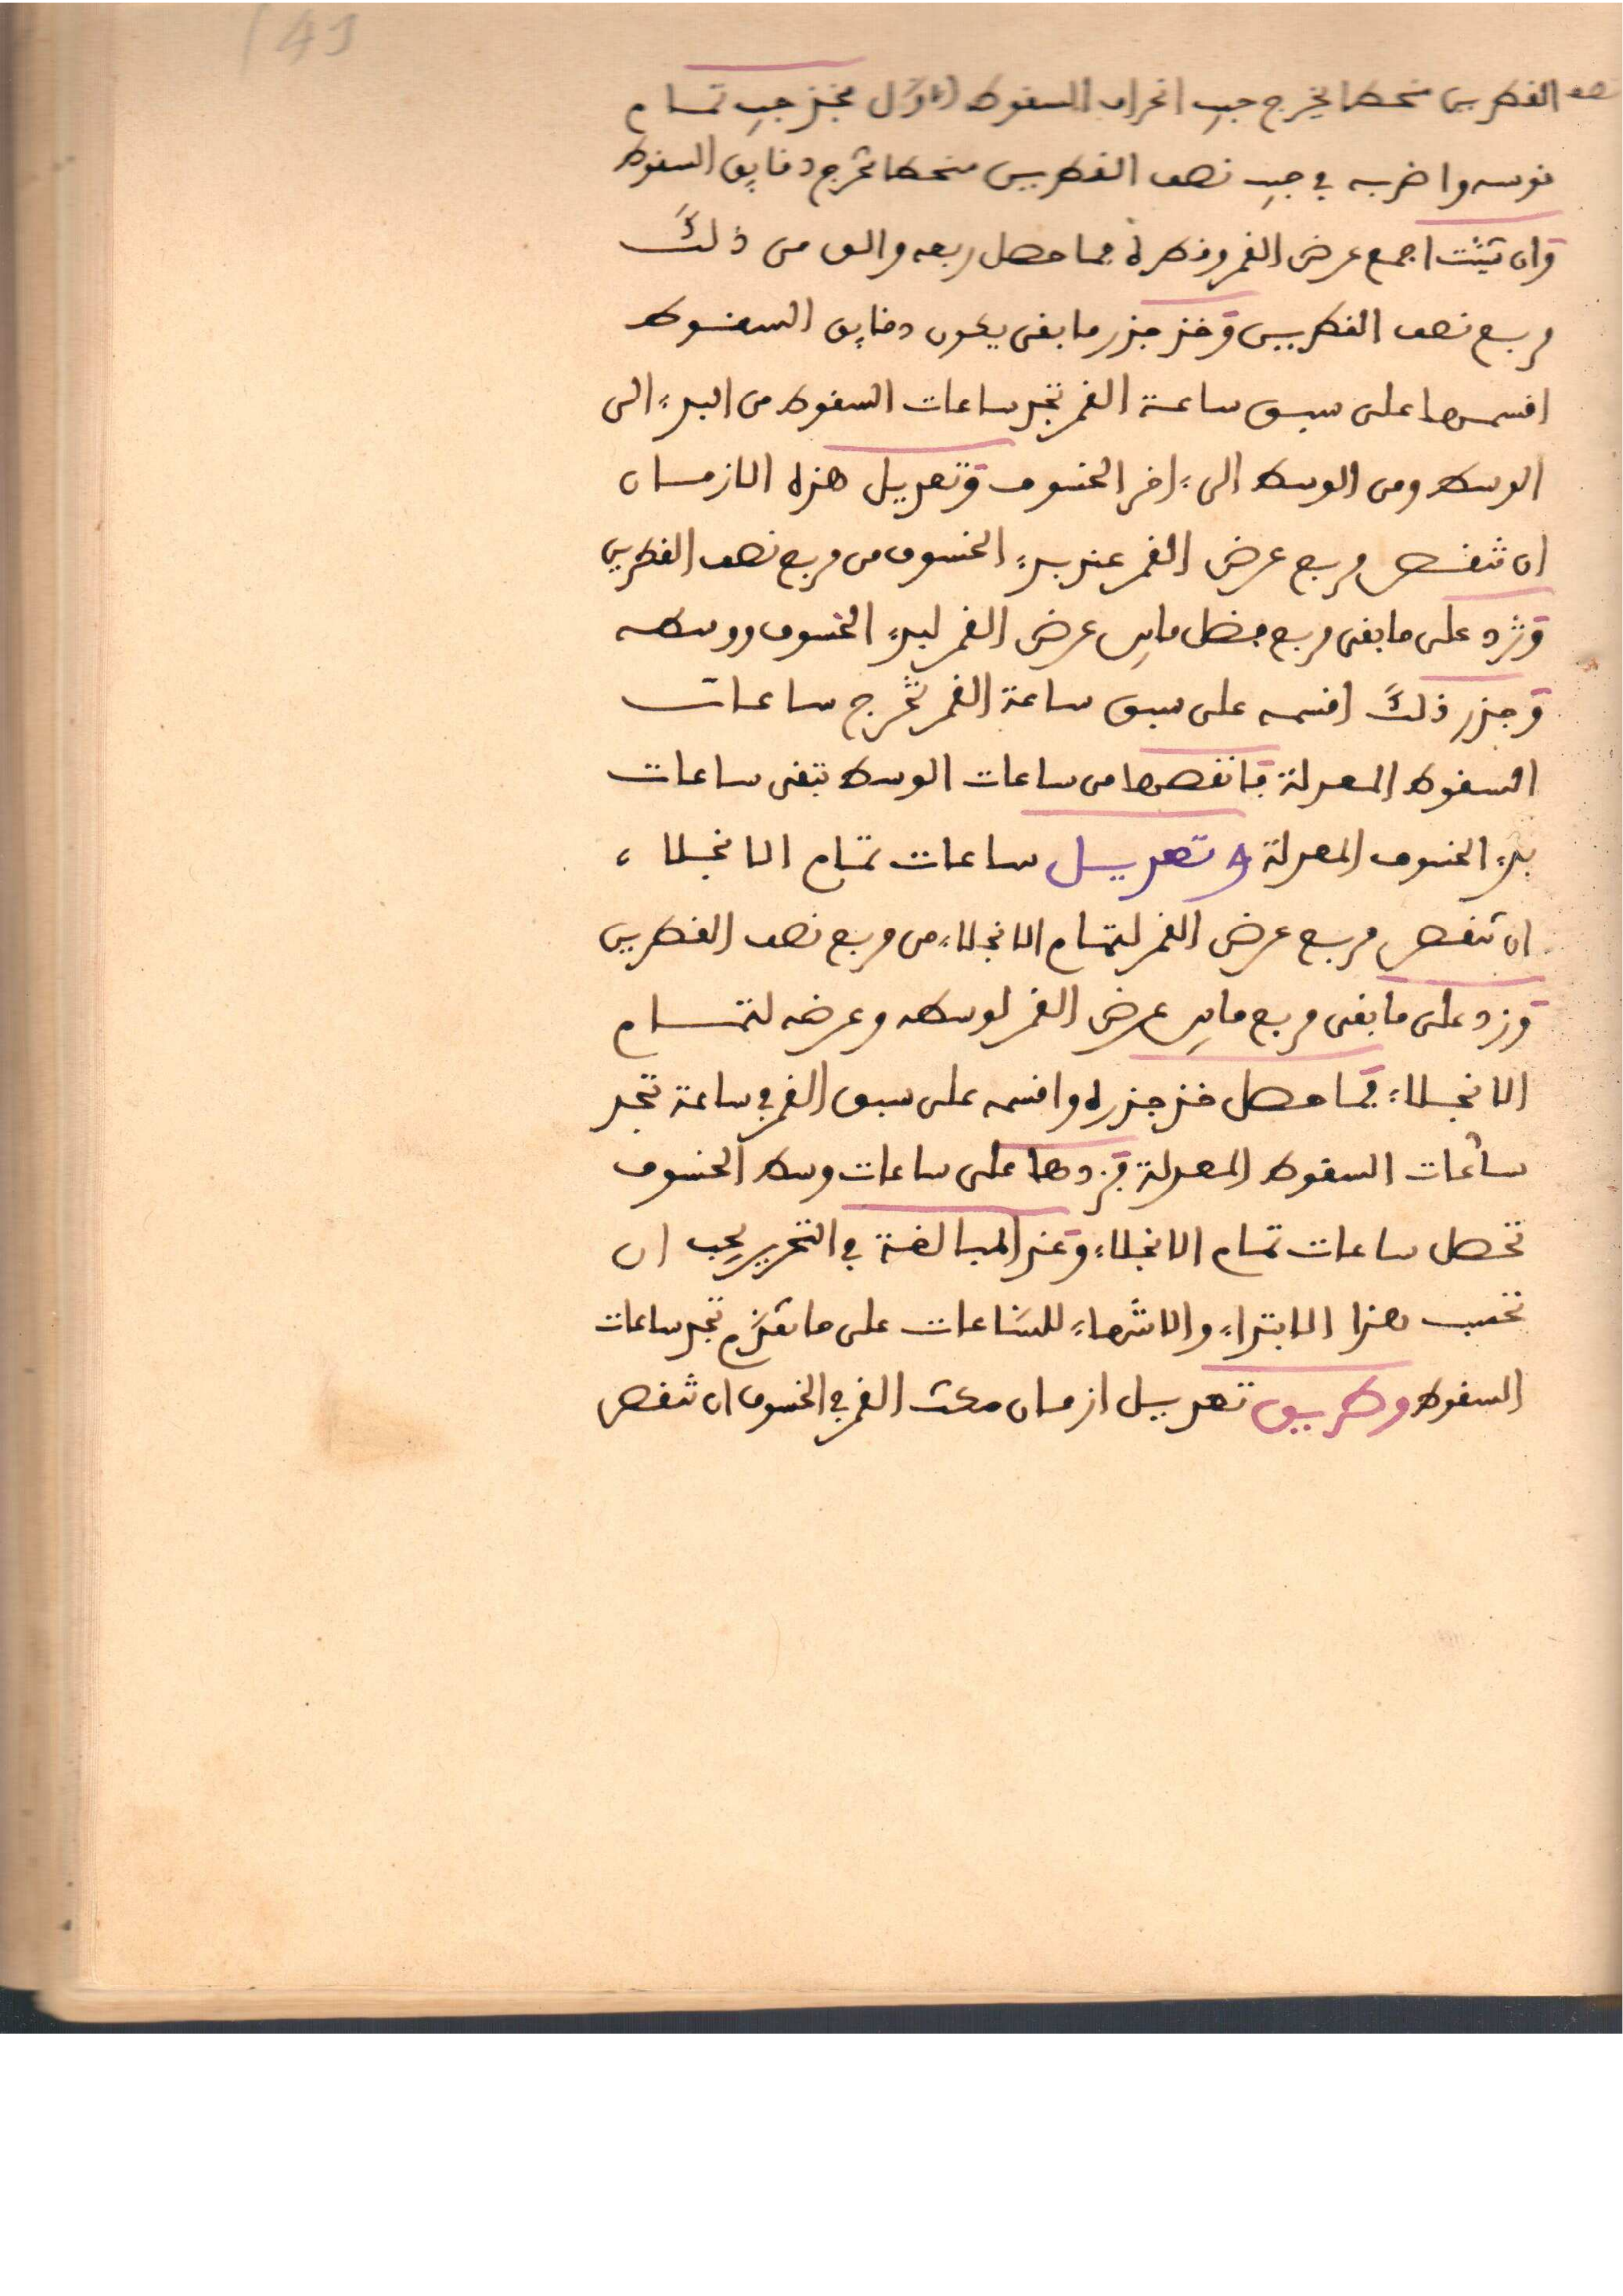 149
نصف القطرين منحطا يخرج جيب انحراف السقوط الاول فخذ جيب تمام
قوسه واضربه في جيب نصف القطرين منحطا تخرج دقايق السقوط
وان شئت اجمع عرض القمر وقطره فما حصل ربعه والق من ذلك
مربع نصف القطرين وخذ جذر ما بقى يكون دقايق السقوط
اقسمها على سبق ساعة القمر تجد ساعات السقوط من البدء الى
الوسط ومن الوسط الى ءاخر الخسوف وتعديل هذه الازمان
ان تنقص مربع عرض القمر عند بدء الخسوف من مربع نصف القطرين
وتزد على ما بقى مربع فضل مابين عرض القمر لبدء الخسوف ووسطه
وجذر ذلك اقسمه على سبق ساعة القمر تخرج ساعات
السقوط المعدلة فانقصها من ساعات الوسط تبقى ساعات
بدء الخسوف المعدلة وتعديل ساعات تمام الانجلاء
ان تنقص مربع عرض القمر لتمام الانجلاء من مربع نصف القطرين
وزد على ما بقى مربع مابين عرض القمر لوسطه وعرضه لتمام
الانجلاء فما حصل خذ جذره واقسمه على سبق القمر في ساعة تجد
ساعات السقوط المعدلة فزدها على ساعات وسط الخسوف
تحصل ساعات تمام الانجلاء وعند المبالغة في التحرير يجب ان
تحسب هذا الابتداء والانتهاء للساعات على ما تقدم تجد ساعات
السقوط وطريق تعديل ازمان مكث القمر في الخسوف ان تنقص